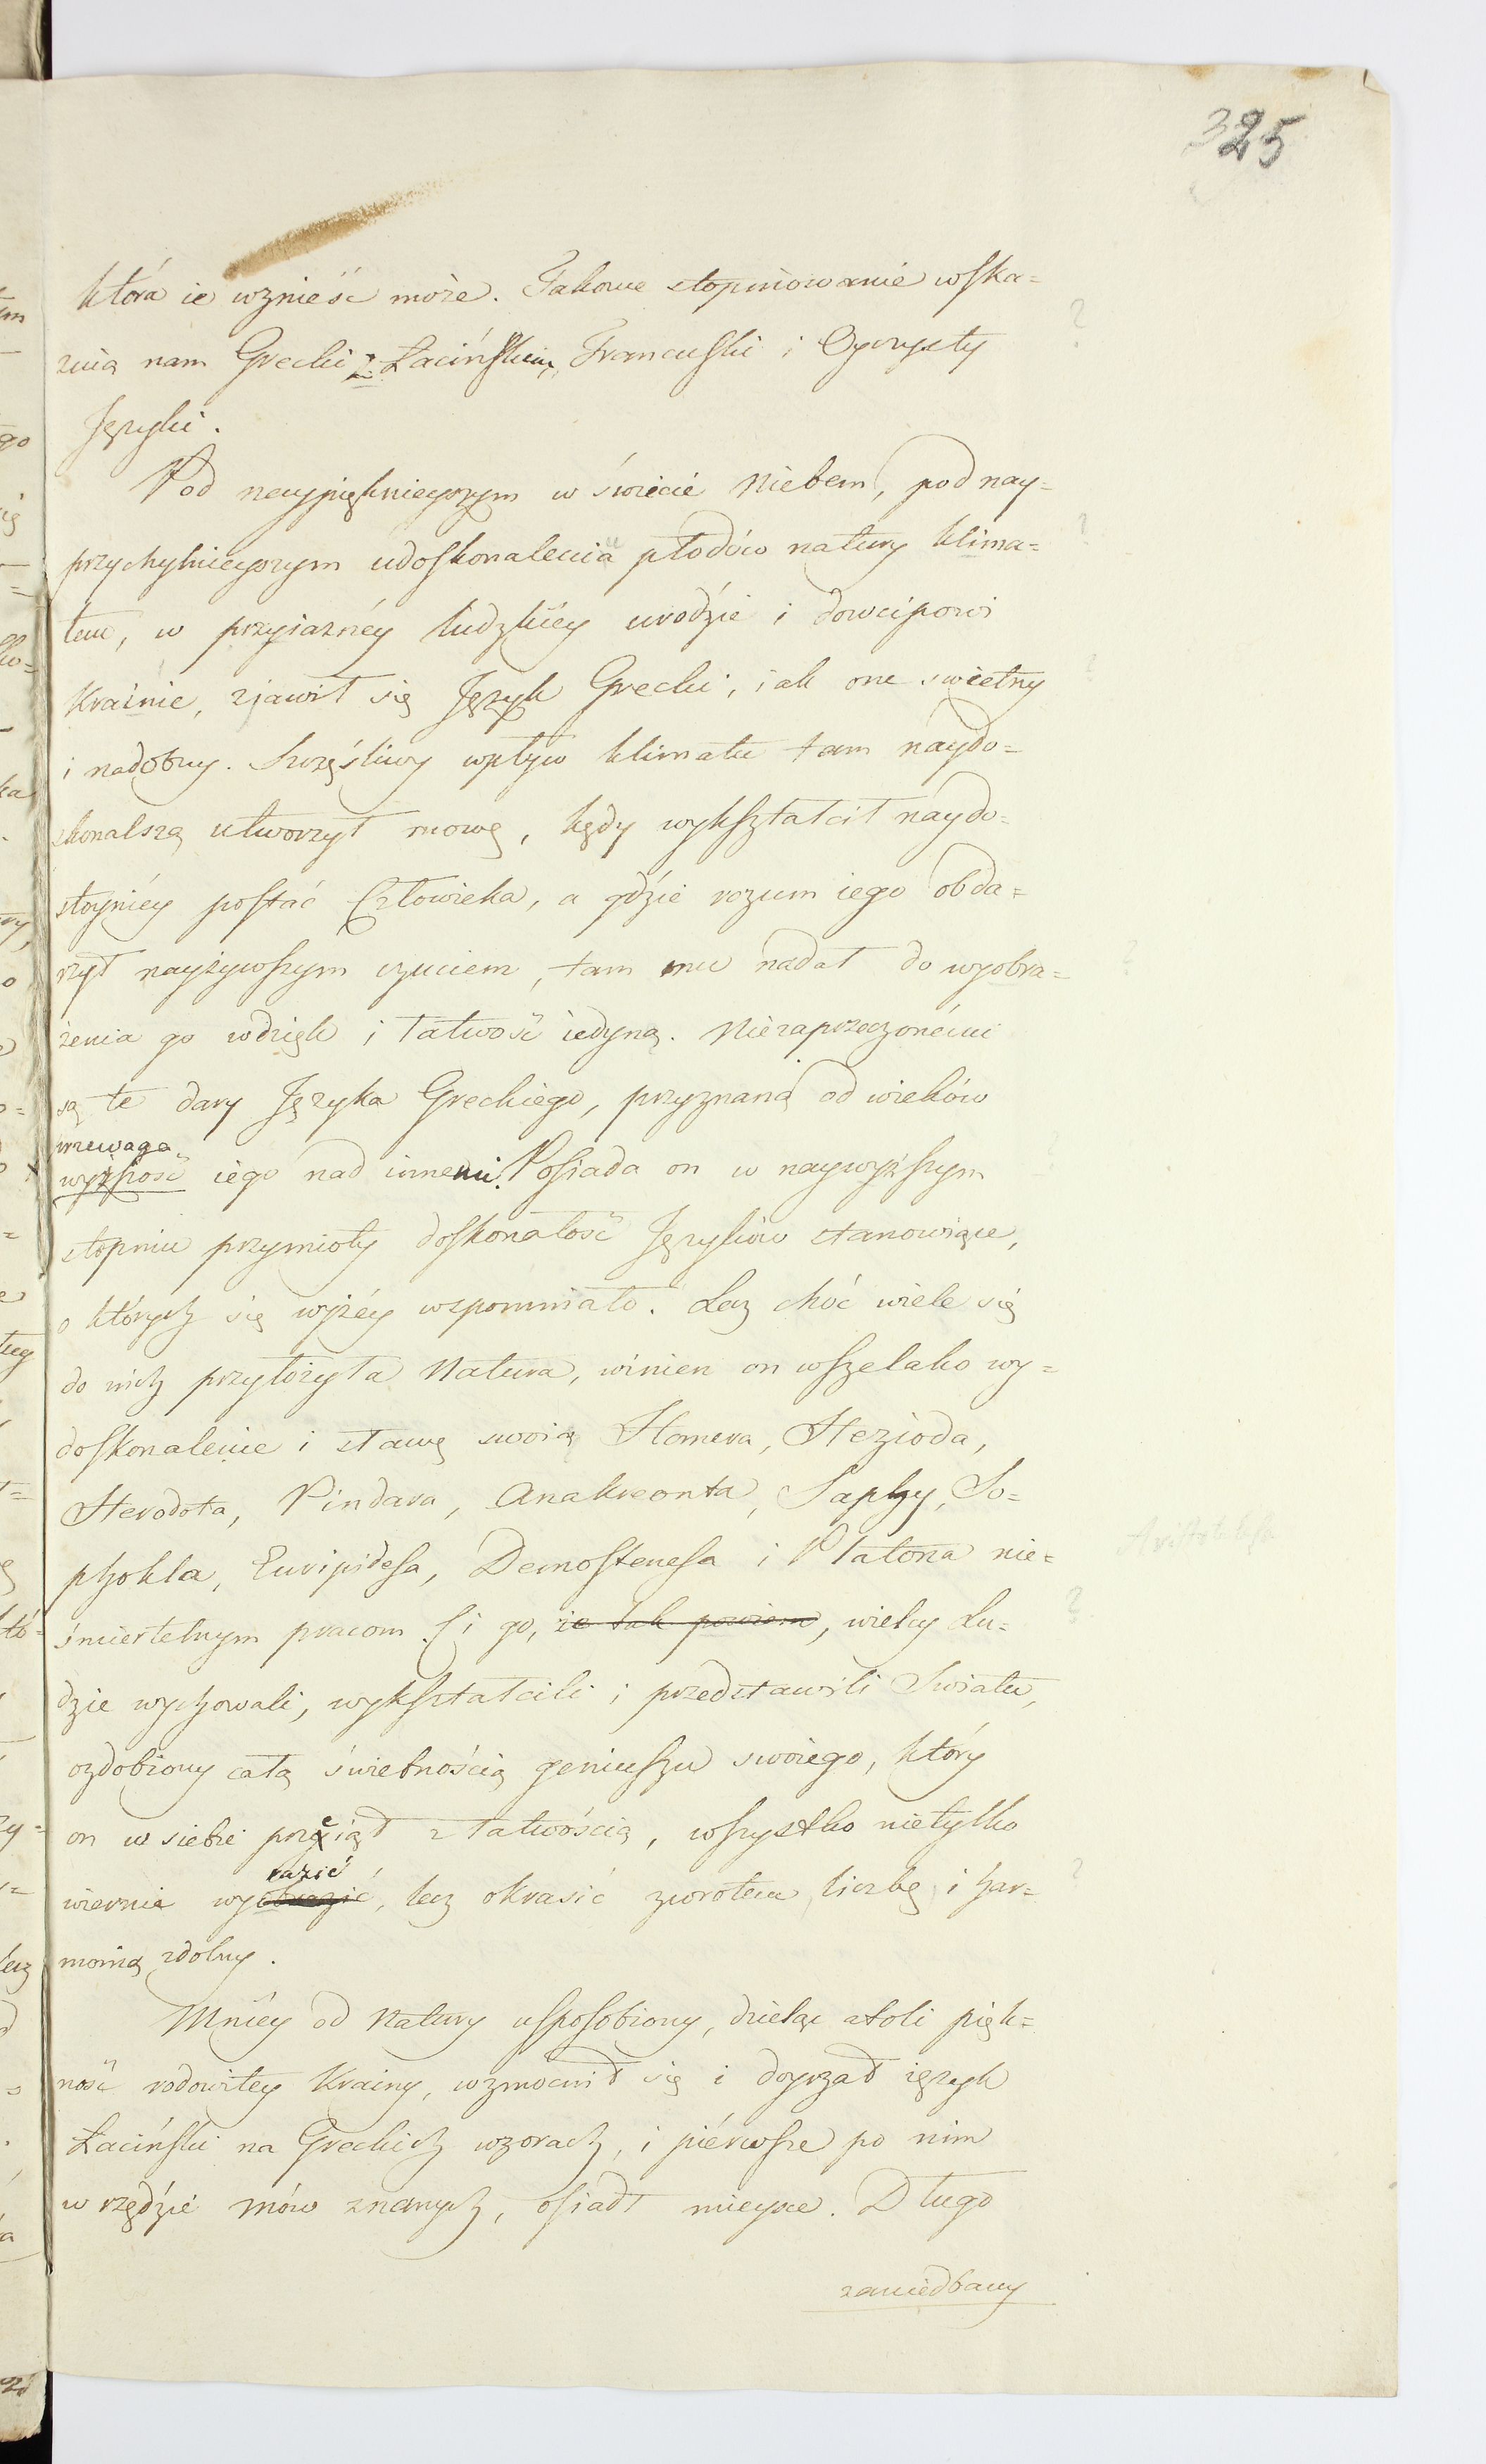 325
która ie wznieść może. Takowe stopniowanie wska=
zuią nam Grecki z Łacińskim, Francuski i Oyczysty
Języki.
Pod naypięknieyszym w świecie Niebem, pod nay=
przychylnieyszym udoskonalenia płodów natury klima=
tem, w przyiaznéy ludzkiéy urodzie i dowcipowi
Krainie, zjawił się Język Grecki, iak one swietny
i nadobny. Szczęśliwy wpływ klimatu tam naydo=
skonalszą utworzył mowę, kędy wykształcił naydo=
stoyniéy postać Człowieka, a gdzie rozum iego obda=
rzył nayżywszym czuciem, tam mu nadał do wyobra=
żenia go wdzięk i łatwość iedyną. Niezaprzeczonémi
są te dary Języka Greckiego, przyznaną od wieków
przewaga
wyższość iego nad innemi. Posiada on w naywyższym
stopniu przymioty doskonałość Języków stanowiące,
o których się wyżéy wspomniało. Lecz choć wiele się
do nich przyłożyła Natura, winien on wszelako wy=
doskonalenie i sławę swoią Homera, Hezioda,
Herodota, Pindara, Anakreonta, Saphy, So=
phokla, Euripidesa, Demostenesa i Platona nie=
Aristotelesa
śmiertelnym pracom. Ci go, że tak powiem, wielcy Lu=
dzie wychowali, wykształcili i przedstawili Swiatu,
ozdobiony całą świetnością geniuszu swoiego, który
on w siebie przeiął z łatwością, wszystko nietylko
razić
wiernie wyobrazić, lecz okrasić zwrotem, liczbę i har=
monią zdolny.
Mniéy od Natury usposobiony, dzieląc atoli pięk=
ność rodowitey Krainy, wzmocnił się i doyrzał ięzyk
Łaciński na Greckich wzorach, i piérwsze po nim
w rzędzie mów znanych, osiadł mieysce. Długo
zaniedbany